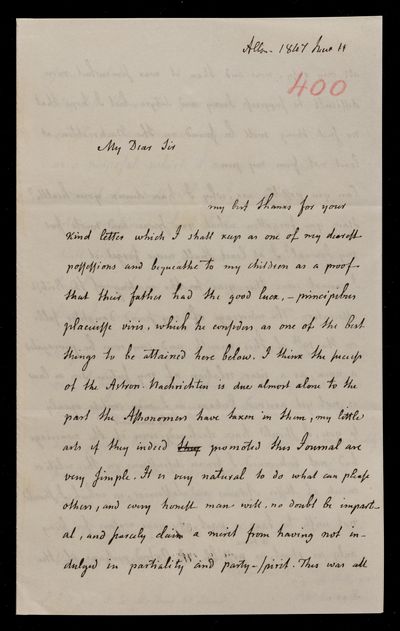 Altona 1847 June 11
400
My Dear Sir
my best thanks for your
kind letter which I shall keep as one of my dearest
possessions and bequeathe to my children as a proof
that their father had the good luck, – principibus
placuisse viris, which he considers as one of the best
things to be attained here below. I think the success
of the Astron. Nachrichten is due almost alone to the
part the Astronomers have taken in them, my little
arts if they indeed they promoted this Journal are
very simple. It is very natural to do what can please
others, and every honest man will, no doubt be imparti-
al, and scarcely claim a merit from having not in-
dulged in partiality and party-spirit. This was all